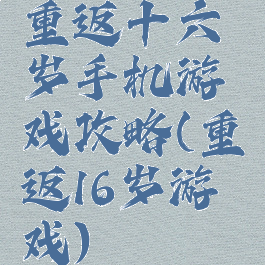 重返十六
岁手机游
戏攻略(重
返16岁游
戏)